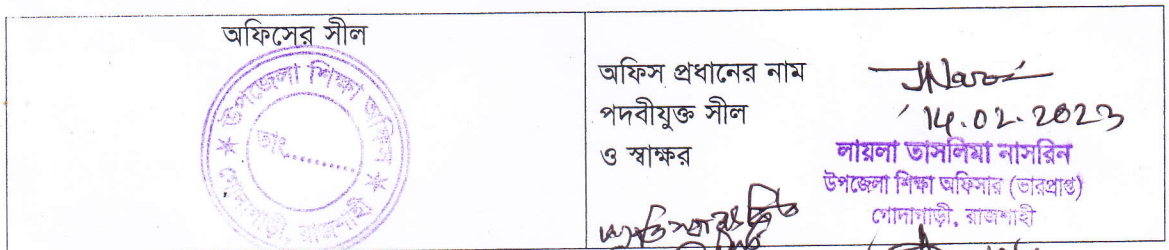 অফিসের সীল
উপজেলা শিক্ষা অফিস
তাং..............
গোদাগাড়ী, রাজশাহী
অফিস প্রধানের নাম
পদবীযুক্ত সীল
ও স্বাক্ষর
14.02.2023
লায়লা তাসলিমা নাসরিন
উপজেলা শিক্ষা অফিসার (ভারপ্রাপ্ত)
গোদাগাড়ী, রাজশাহী